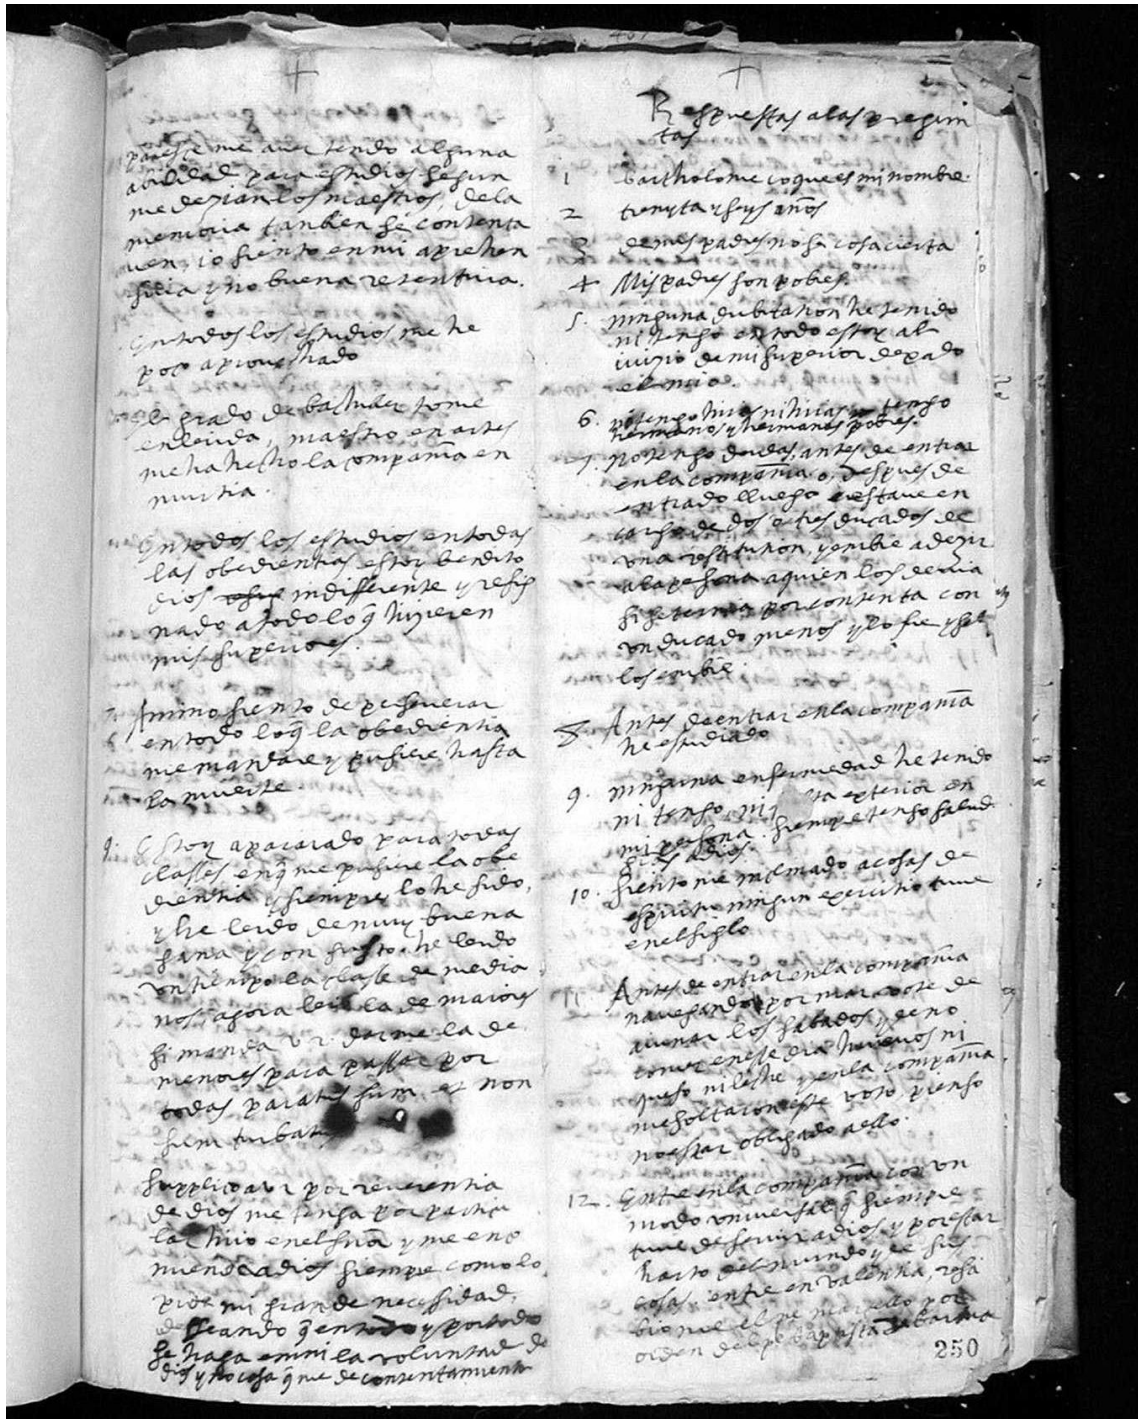 pareçe me aver tenido alguna
abilidad para estudios segun
me dezian los maestros, dela
memoria tanbien se contenta
ven, io siento en mi aprehen
siva y no buena retentiva.
En todos los estudios me he
poco aprovechado
El grado de bachiller tome
en lerida, maestro en artes
me ha hecho la compañia en
murtia.
En todos los estudios en todas
las obedientias estoy bendito
dios indifferente y resig
nado a todo lo q̃ hizieren
mis superiores.
Animo siento de perseverar
en todo lo q̃ la obedientia
me mandare y pusiere, hasta
la muerte
9. Estoy aparaiado para todas
classes en q̃ me pusiere la obe
dientia y siempre lo he sido,
y he leido de muy buena
gana y con gusto. he leido
un tienpo la classe de media
nos, agora leo la de maiores
si manda v. r. darme la de
menores para passar por
todas paratus sum et non
sum turbatus
Supplico a v r por reverentia
de dios me tenga por particu
lar hijo en el señor y me enco
miende a dios siempre como lo
pide mi grande necessidad,
desseando q̃ en todo y por todo
se haga en mi la voluntad de
dios y no cosa q̃ me de contentamiento
Respuestas a las pregun
tas
1 Bartholome coque es mi nombre.
2 treynta y seys años
3 de mis padres no se cosa cierta
4 Mis padres son pobres.
5. ninguna dubitation he tenido
ni tengo en todo estoy al
iuizio de mi superior dexado
el mio.
6. ni tengo hijos ni hijas tengo
hermanos y hermanas pobres.
7. No tengo deudas, antes de entrar
en la compañia o, despues de
entrado lluego estave en
cargo de dos o tres ducados de
una restitution, y enbie a dezir
a la persona a quien los devia
si se ternia por contenta con
un ducado menos y lo fue y se
los enbie.
8. Antes de entrar en la compañia
he estudiado
9. ninguna enfermedad he tenido
ni tengo, ni ta exterior en
mi persona. siempre tengo salud
gracias a dios.
10. Siento me inclinado a cosas de
espiritu ningun exercitio tuve
en el siglo
11. Antes de entrar en la compañia
navegando por mar vote de
aiunar los sabados y de no
comer en este dia huevos ni
queso ni leche y en la compañia
me soltaron este voto, pienso
no estar obligado a ello.
12. Entre en la compañia con un
modo universal q̃ siempre
tuve de servir a dios y por estar
harto del mundo y de sus
cosas, entre en valentia, resci
biome el pe marcello por
orden del pe baptista de barma
250